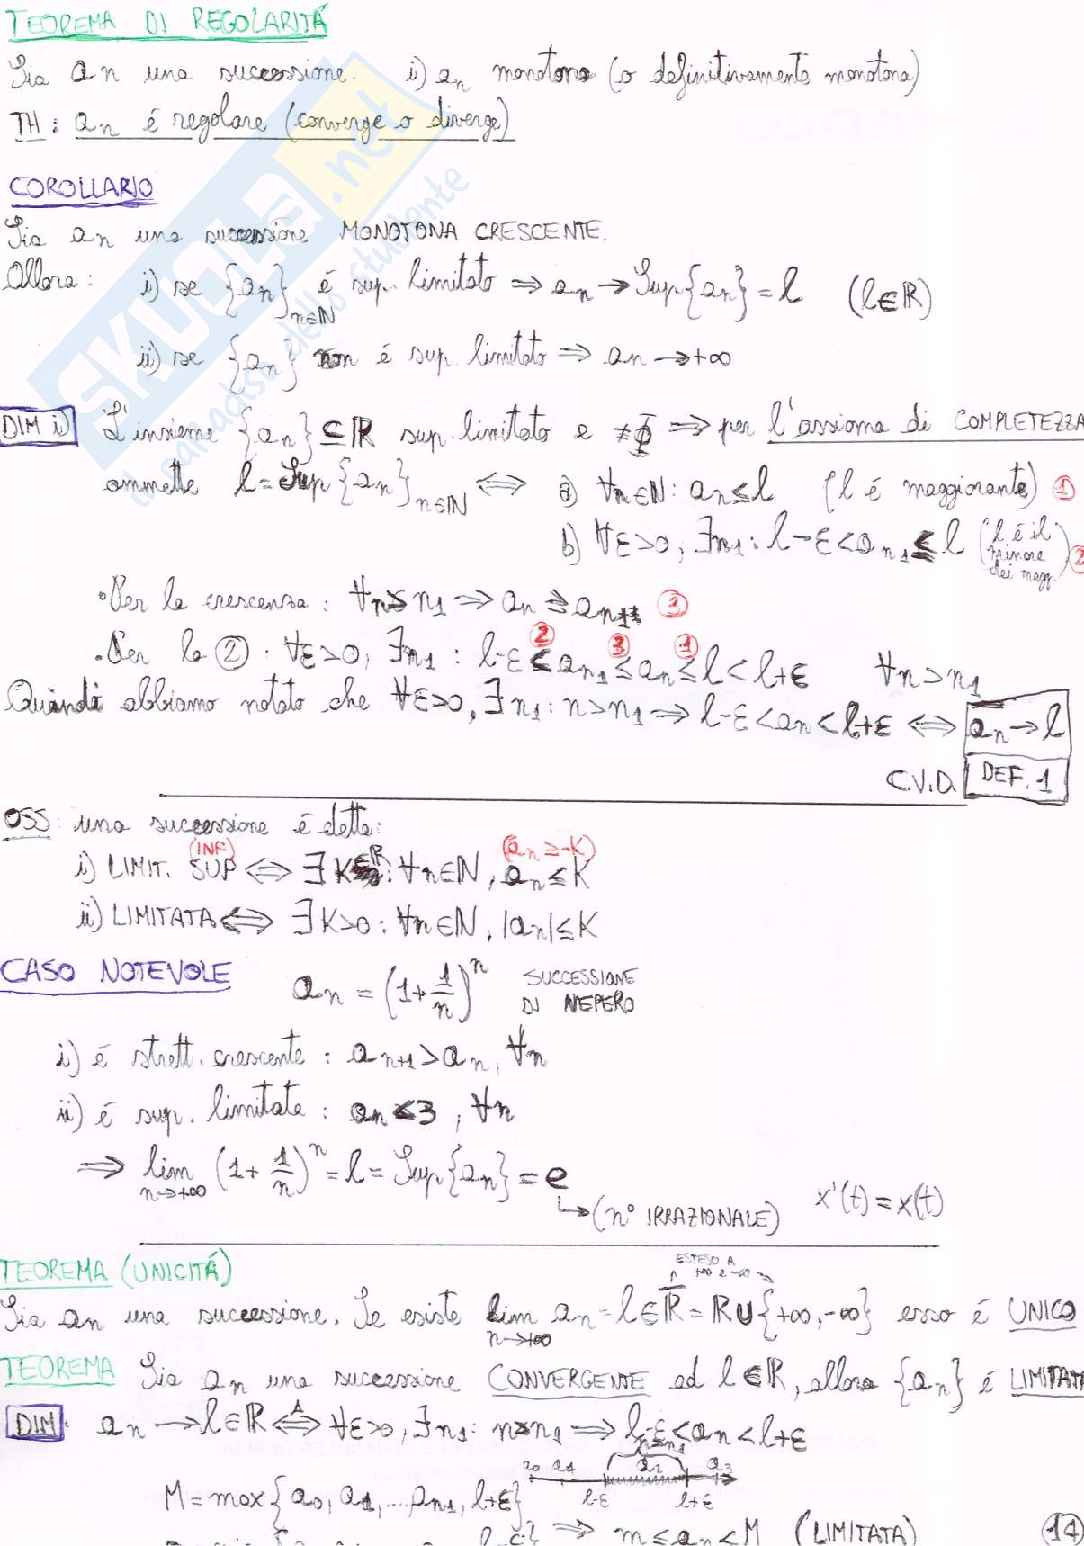 TEOREMA DI REGOLARITÁ
Sia an una successione. ii) an monotona (o definitivamente monotona)
TH: an é regolare (converge o diverge)
COROLLARIO
Sia an una successione MONOTONA CRESCENTE.
Allora: i) se {an}n∈N é sup. limitato ⇒ an → Sup{an} = l (l∈R)
ii) se {an} non é sup. limitato ⇒ an → +∞
DIM i) L'insieme {an} ⊆ R sup. limitato e ≠ Φ ⇒ per l'assioma di COMPLETEZZA
ammette l = Sup{an}n∈N ⇔ a) ∀n∈N: an ≤ l (l é maggiorante) 1
b) ∀ε>0, ∃n1: l-ε < an1 ≤ l (l é il minore dei magg.) 2
• Per la crescenza: ∀n > n1 ⇒ an ≥ an1 3
• Per la 2: ∀ε>0, ∃n1: l-ε < an1 ≤ an ≤ l < l+ε ∀n>n1
2 3 1
Quindi abbiamo notato che ∀ε>0, ∃n1: n>n1 ⇒ l-ε < an < l+ε ⇔ an → l
C.V.D. DEF. 1
OSS: una successione é detta:
i) LIMIT. SUP (INF) ⇔ ∃K∈R: ∀n∈N, an ≤ K (an ≥ -K)
ii) LIMITATA ⇔ ∃K>0: ∀n∈N, |an| ≤ K
CASO NOTEVOLE an = (1 + 1/n)^n SUCCESSIONE DI NEPERO
i) é strett. crescente: an+1 > an, ∀n
ii) é sup. limitata: an < 3, ∀n
⇒ lim n→+∞ (1 + 1/n)^n = l = Sup{an} = e
↳ (n° IRRAZIONALE) x'(t) = x(t)
TEOREMA (UNICITÁ)
ESTESO A +∞ e -∞
Sia an una successione. Se esiste lim n→+∞ an = l∈R̅ = R∪{+∞,-∞} esso é UNICO
TEOREMA Sia an una successione CONVERGENTE ad l∈R, allora {an} é LIMITATA
DIM: an → l∈R ⇔ ∀ε>0, ∃n1: n>n1 ⇒ l-ε < an < l+ε
a0 a1 a2 a3
l-ε l+ε
M = max{a0, a1, ... an1, l+ε}
⇒ m ≤ an < M (LIMITATA)
14
SKUOLA.net
il paradiso dello studente